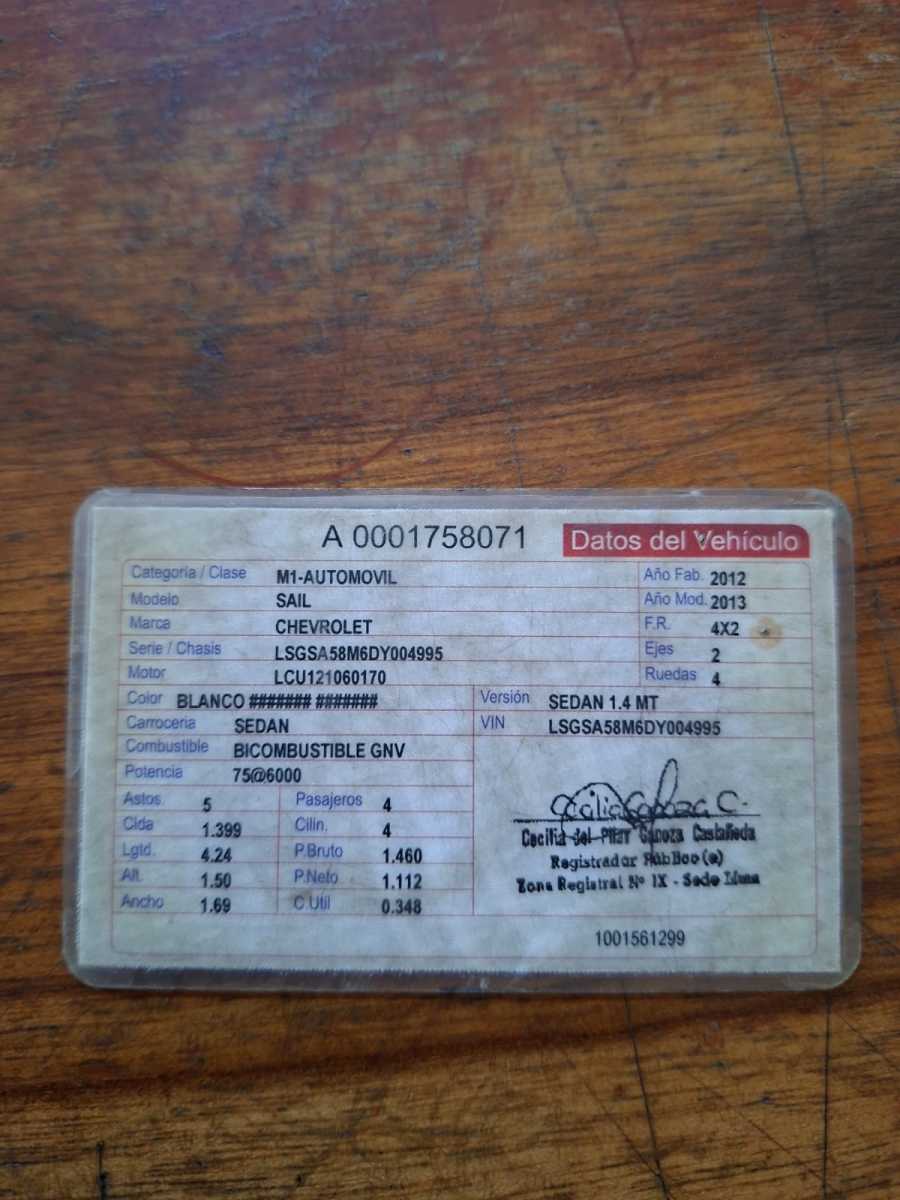 A 0001758071 Datos del Vehículo
Categoria / Clase M1-AUTOMOVIL Año Fab. 2012
Modelo SAIL Año Mod. 2013
Marca CHEVROLET F.R. 4X2
Serie / Chasis LSGSA58M6DY004995 Ejes 2
Motor LCU121060170 Ruedas 4
Color BLANCO ####### ####### Versión SEDAN 1.4 MT
Carroceria SEDAN VIN LSGSA58M6DY004995
Combustible BICOMBUSTIBLE GNV
Potencia 75@6000
Astos. 5 Pasajeros 4
Clda 1.399 Cilin. 4
Lgtd. 4.24 P.Bruto 1.460
Alt. 1.50 P.Neto 1.112
Ancho 1.69 C.Util 0.348
Cecilia del Pilar Canoza Castañeda
Registrador Público (e)
Zona Registral Nº IX - Sede Lima
1001561299